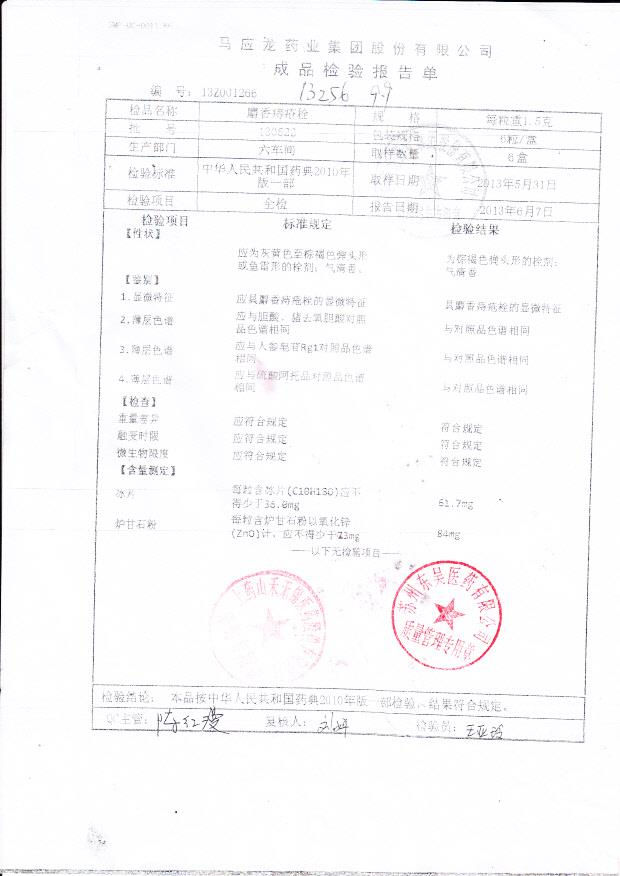 马应龙药业集团股份有限公司
成品检验报告单
编 号: 13Z001266 13256 9.9
检品名称 麝香痔疮栓 规 格 每粒重1.5克
批 号 130522 包装规格 6粒/盒
生产部门 六车间 取样数量 6盒
检验标准 中华人民共和国药典2010年版一部 取样日期 2013年5月31日
检验项目 全检 报告日期 2013年6月7日
检验项目 标准规定 检验结果
【性状】
应为灰黄色至棕褐色弹头形 为棕褐色弹头形的栓剂;
或鱼雷形的栓剂;气清香。 气清香
【鉴别】
1.显微特征 应具麝香痔疮栓的显微特征 具麝香痔疮栓的显微特征
2.薄层色谱 应与胆酸、猪去氧胆酸对照 与对照品色谱相同
品色谱相同
3.薄层色谱 应与人参皂苷Rg1对照品色谱 与对照品色谱相同
相同
4.薄层色谱 应与硫酸阿托品对照品色谱 与对照品色谱相同
相同
【检查】
重量差异 应符合规定 符合规定
融变时限 应符合规定 符合规定
微生物限度 应符合规定 符合规定
【含量测定】
冰片 每粒含冰片(C10H18O)应不 61.7mg
得少于36.0mg
炉甘石粉 每粒含炉甘石粉以氧化锌 84mg
(ZnO)计、应不得少于73mg
——以下无检验项目——
苏州东吴医药有限公司
质量管理专用章
检验结论: 本品按中华人民共和国药典2010年版一部检验、结果符合规定。
QC主管: 复核人: 检验员: 王亚玲